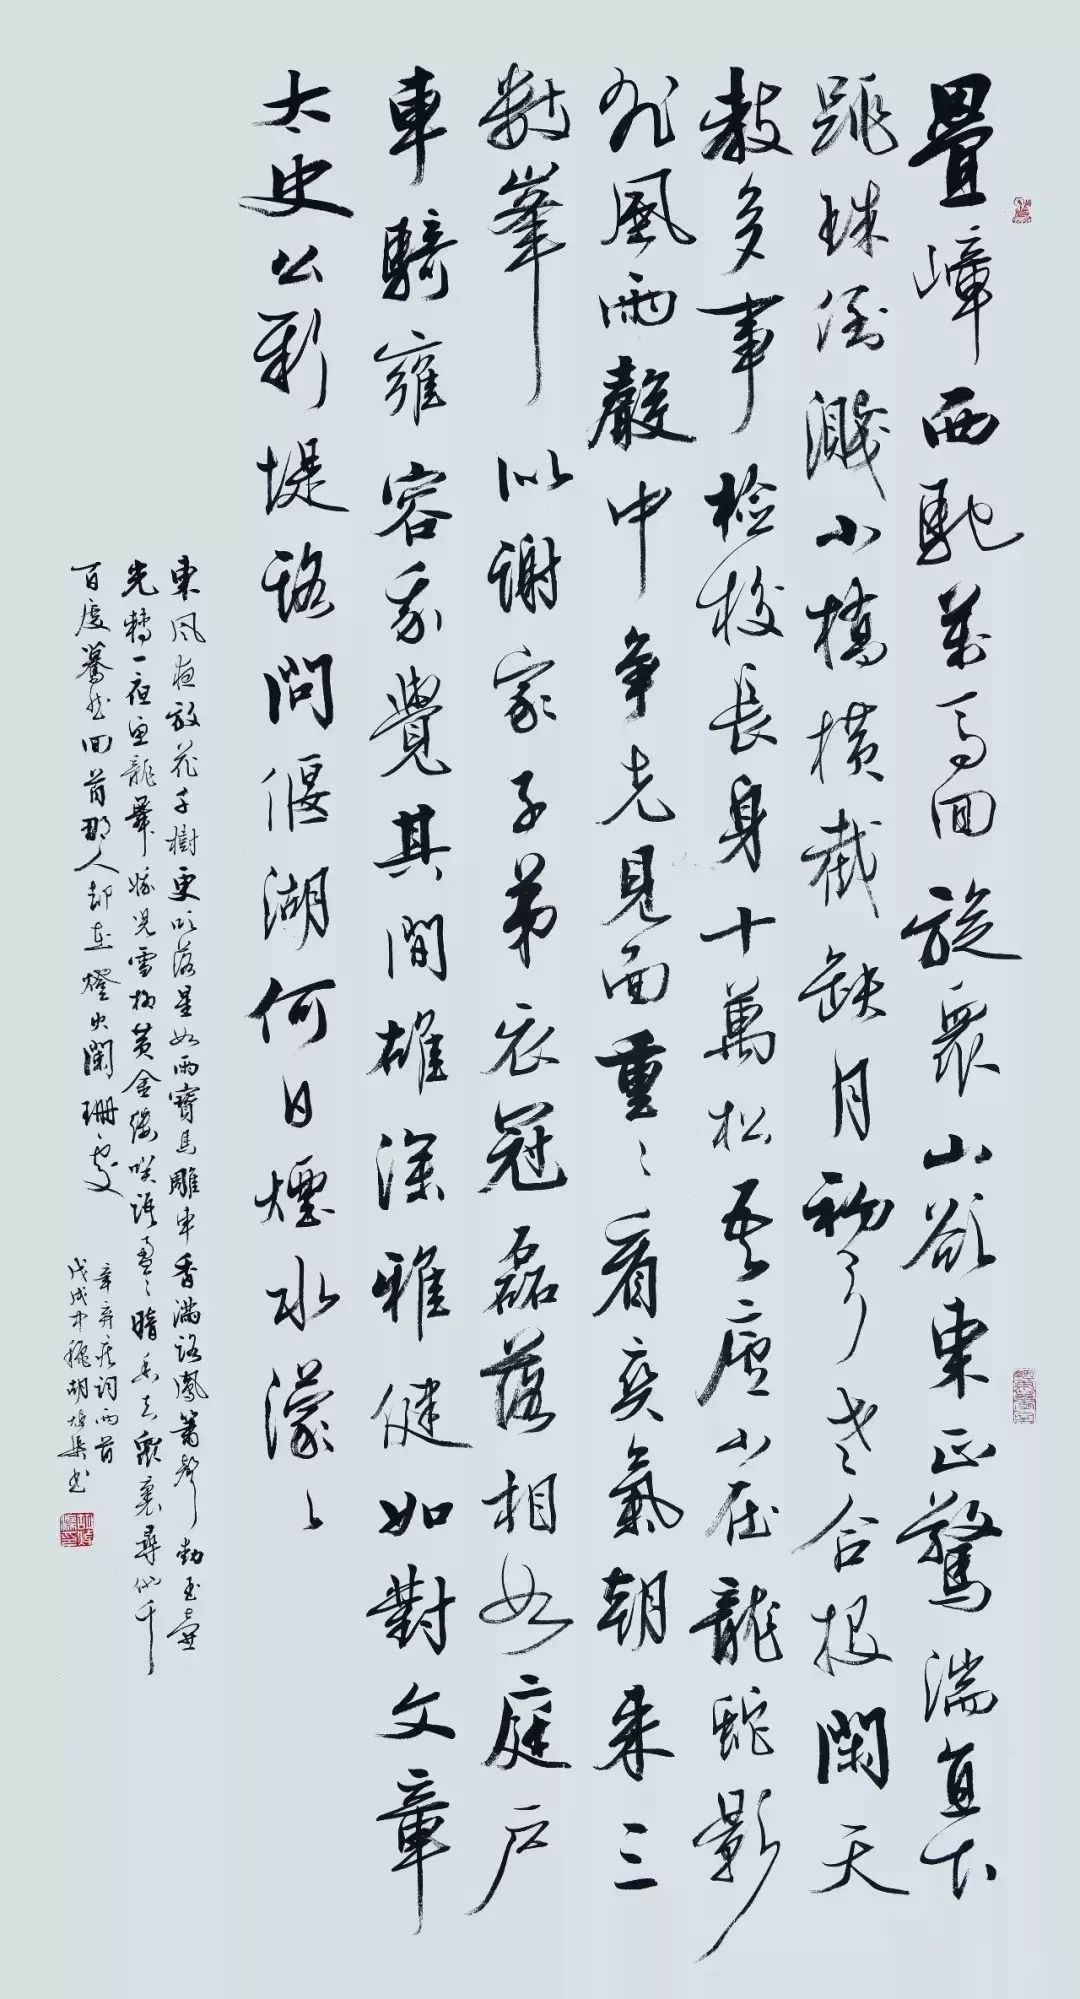 疊嶂西馳萬馬回旋衆山欲東正驚湍直下
跳珠倒濺小橋橫截缺月初弓老合投閑天
教多事檢校長身十萬松吾廬小在龍蛇影
外風雨聲中爭先見面重〻看爽氣朝來三
數峯似謝家子弟衣冠磊落相如庭户
車騎雍容我覺其間雄深雅健如對文章
太史公新堤路問偃湖何日煙水濛〻
東風夜放花千樹更吹落星如雨寶馬雕車香滿路鳳簫聲動玉壺
光轉一夜魚龍舞蛾兒雪柳黃金縷笑語盈〻暗香去衆裏尋他千
百度驀然回首那人却在燈火闌珊處
辛弃疾詞兩首
戊戌中穐胡書